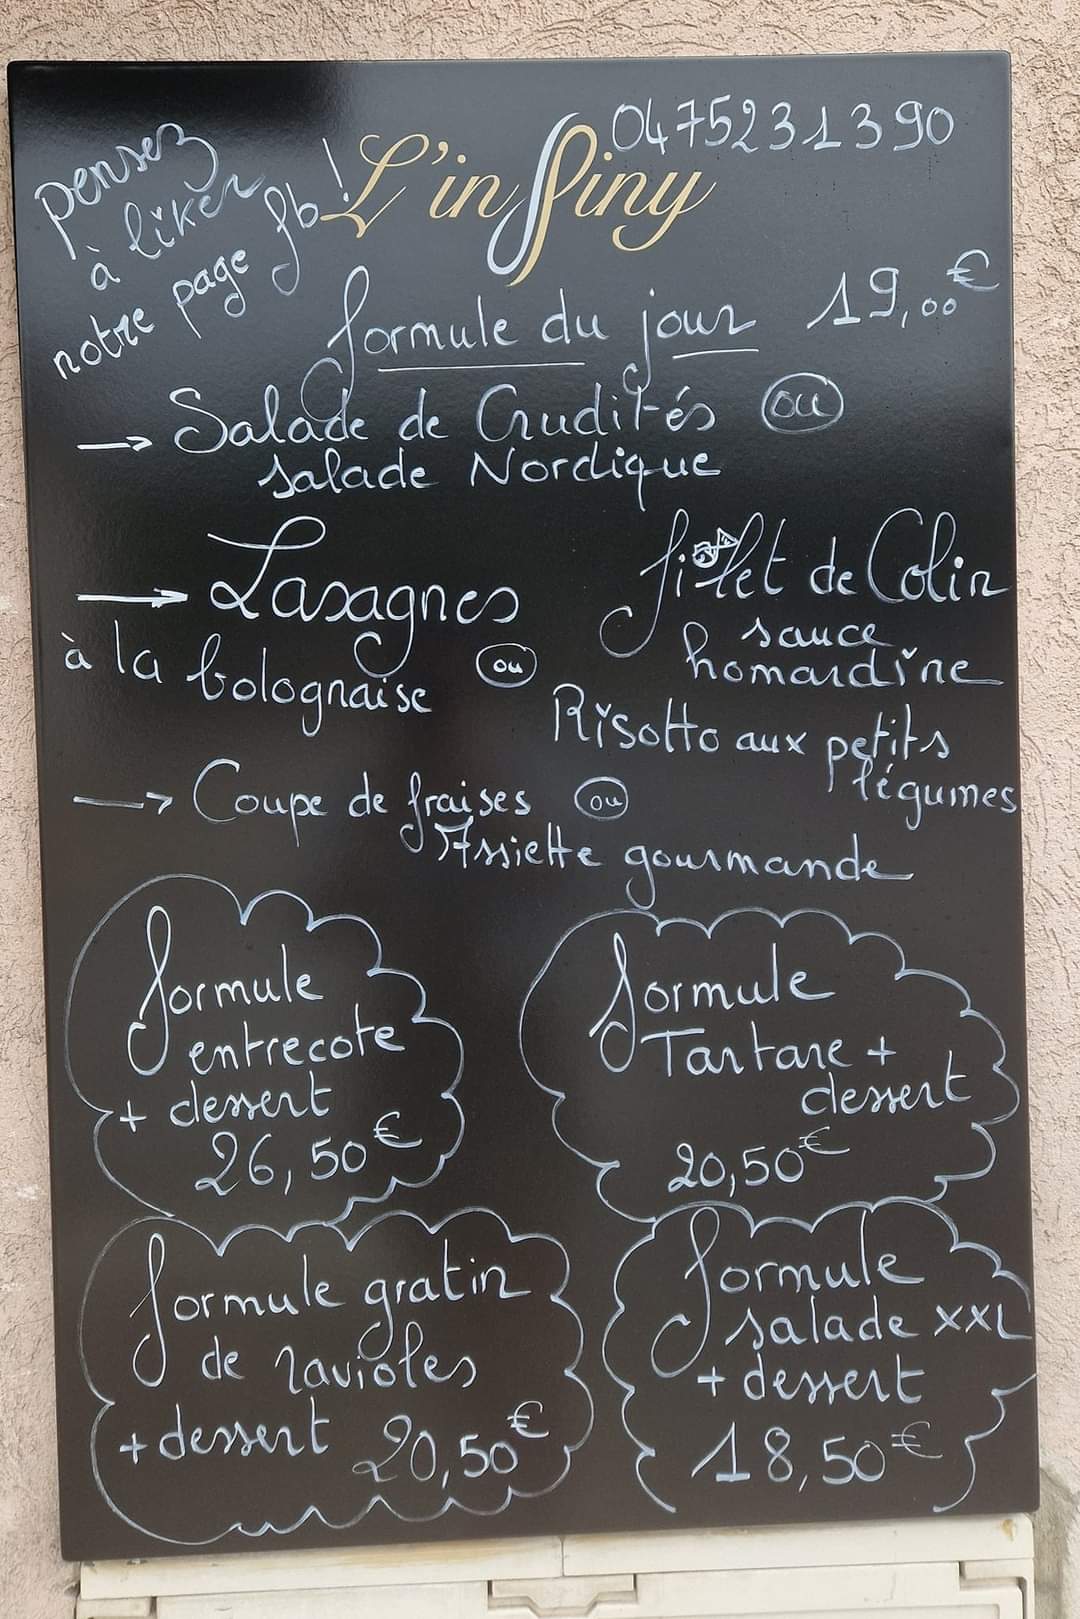 pensez
à liker
notre page fb !
0475231390
L'inffiny
formule du jour 19,00€
→ Salade de Crudités ou
salade Nordique
→ Lasagnes
à la bolognaise
ou
filet de Colin
sauce
homardine
Risotto aux petits
légumes
→ Coupe de fraises ou
Assiette gourmande
formule
entrecote
+ dessert
26,50€
formule
Tartare +
dessert
20,50€
formule gratin
de ravioles
+ dessert 20,50€
formule
salade XXL
+ dessert
18,50€